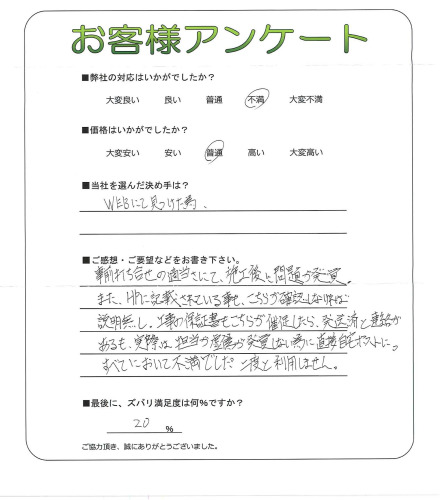 お客様アンケート
■弊社の対応はいかがでしたか？
大変良い 良い 普通 不満 大変不満
■価格はいかがでしたか？
大変安い 安い 普通 高い 大変高い
■当社を選んだ決め手は？
WEBにて見つけた為。
■ご感想・ご要望などをお書き下さい。
事前打ち合せの適当さにて、施工後に問題が発覚。
また、HPに記載されている事も、こちらが確認しなければ
説明無し。工事の保証書もこちらが催促したら、発送済と連絡が
あるも、実際は担当の 発覚しない為に直接自宅ポストに。
すべてにおいて不満でした。二度と利用しません。
■最後に、ズバリ満足度は何%ですか？
20 %
ご協力頂き、誠にありがとうございました。